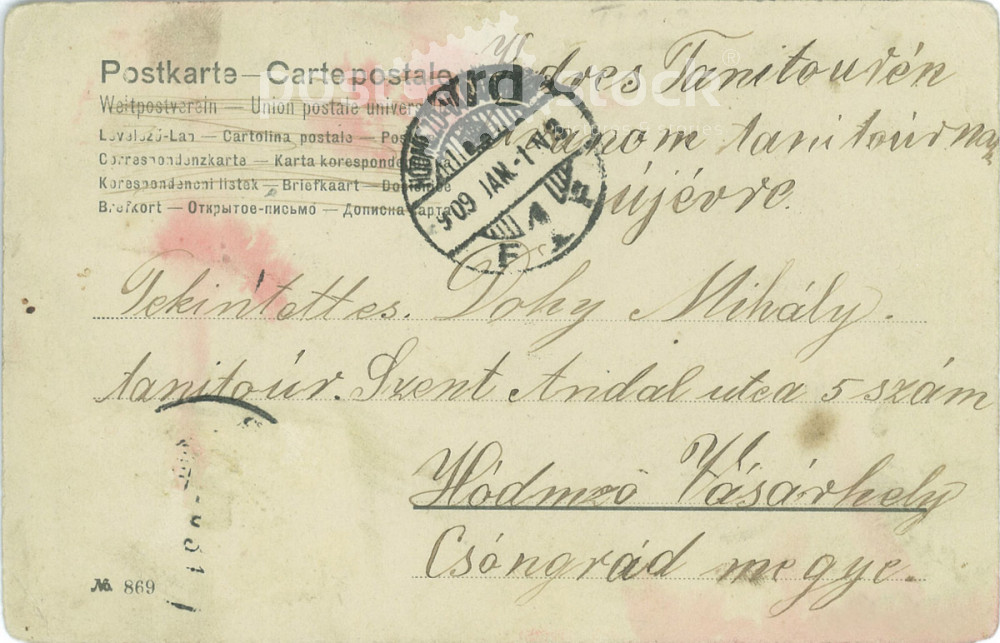 Postkarte — Carte postale
Weltpostverein — Union postale univers
Levelező-Lap — Cartolina postale — Pos
Correspondenzkarte — Karta korespond
Korespondencni listek — Briefkaart — Do
Brefkort — Открытое-письмо — Дописна карта
Tanitourén
tanitour
újévre.
909 JAN.-1
Tekintettes. Dohy Mihály.
tanitoúr. Szent Andal utca 5 szám
Hódmző Vásárhely
Csóngrád megye.
No. 869